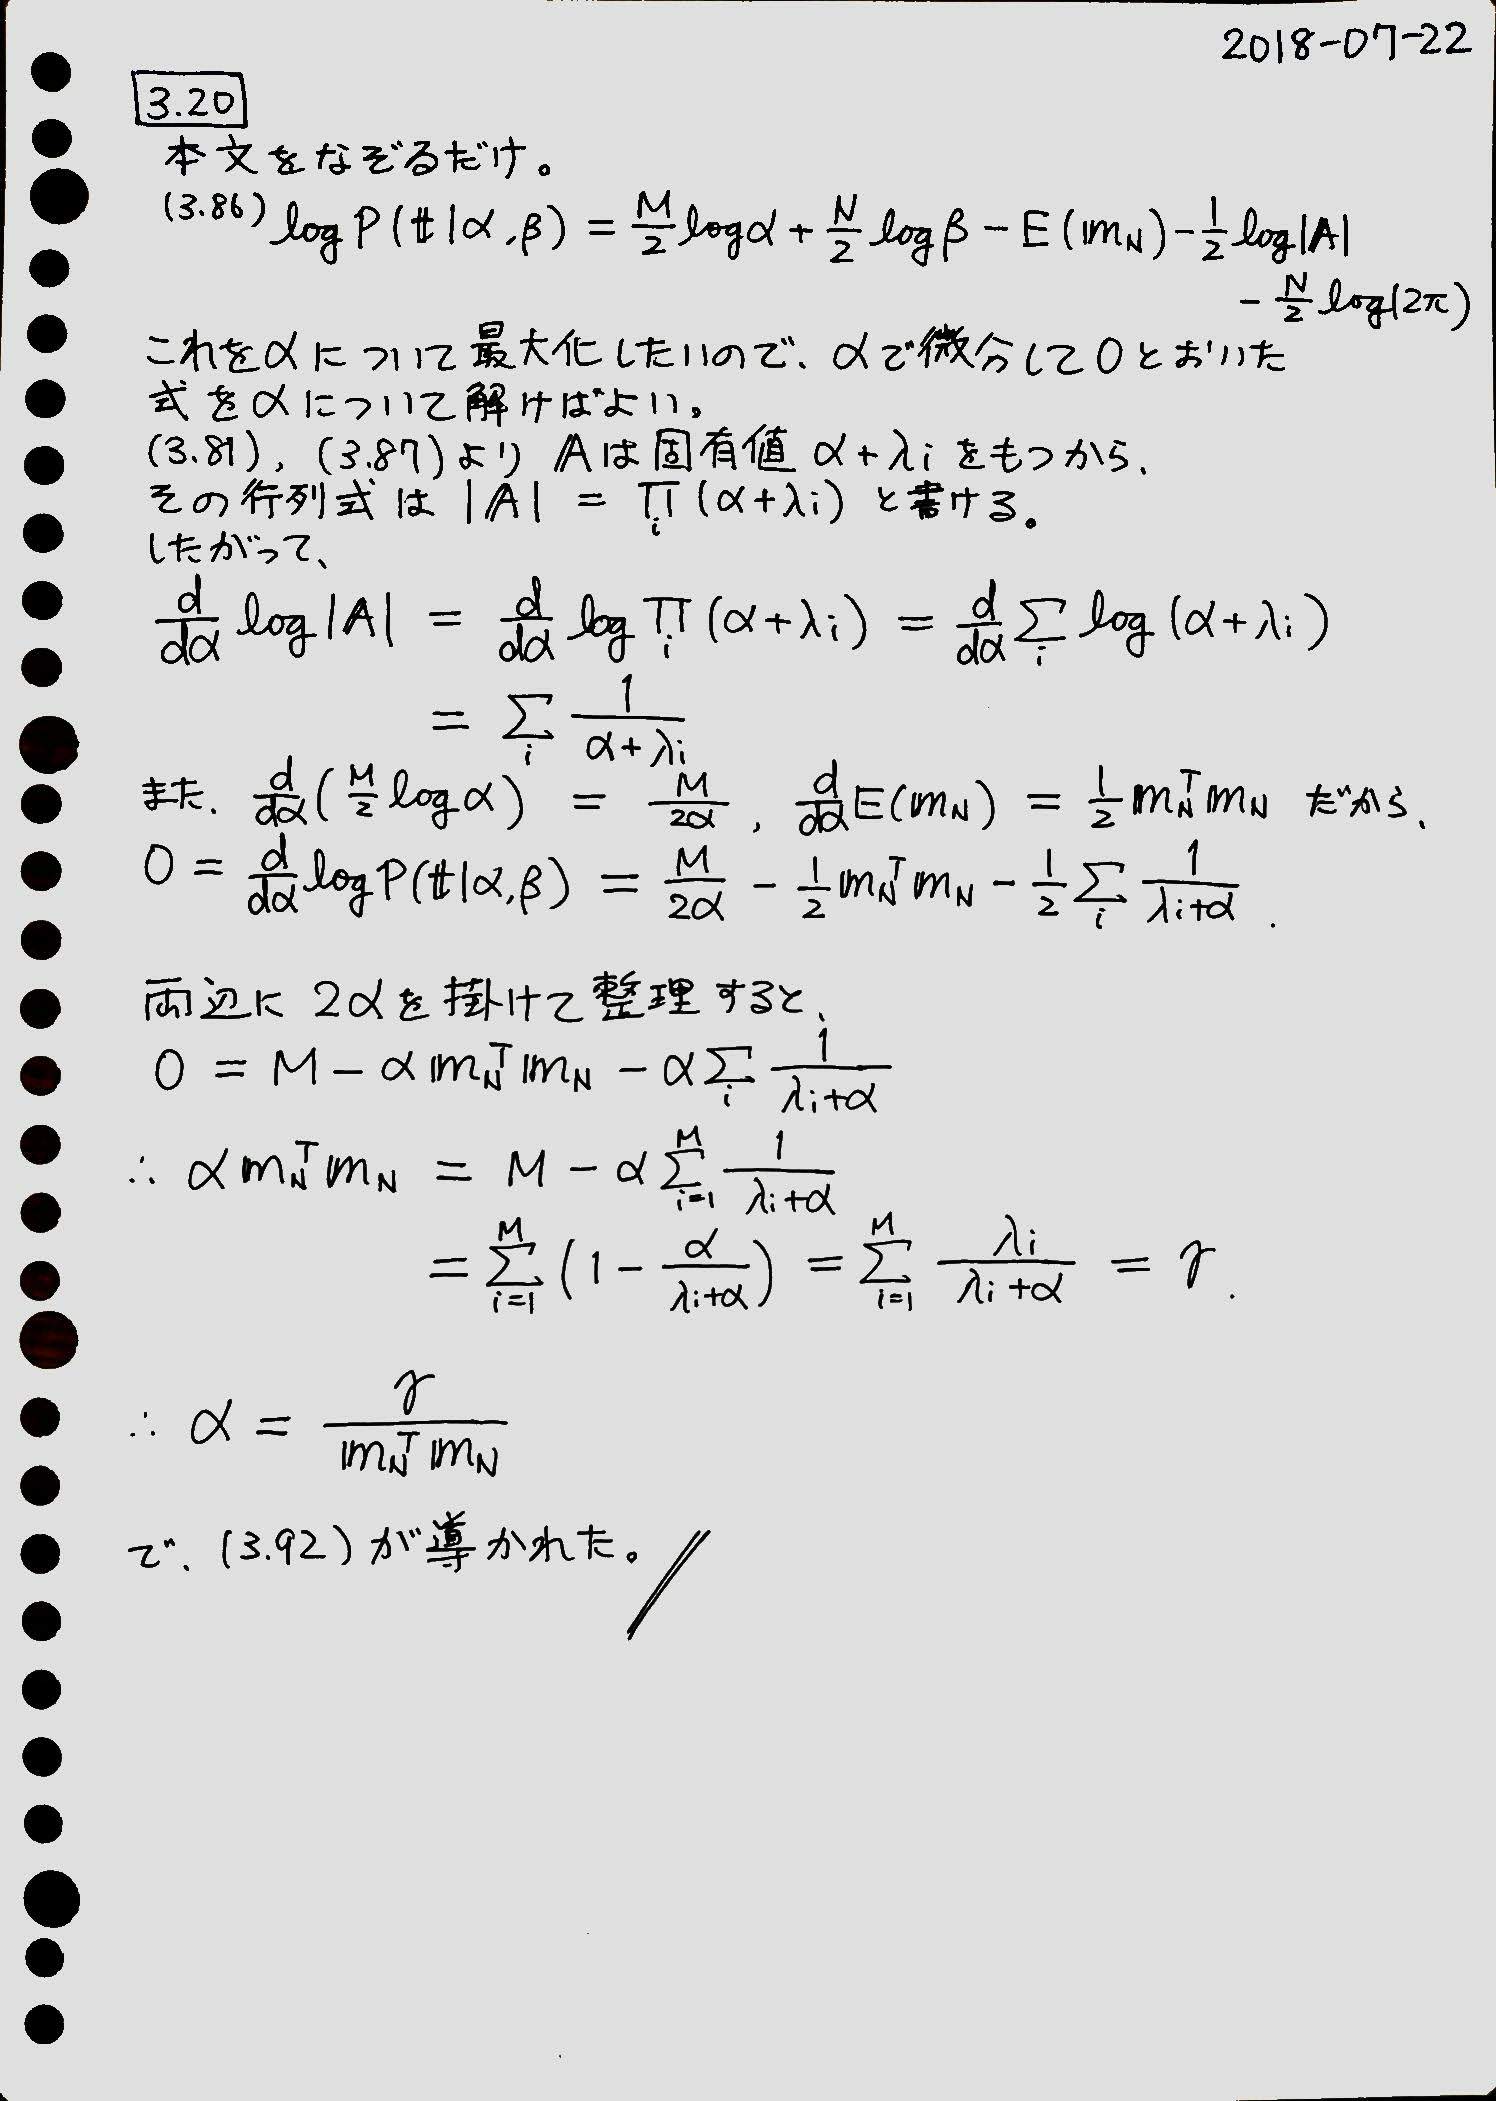 2018-07-22
3.20
本文をなぞるだけ。
(3.86) log P(𝕥|α,β) = M/2 log α + N/2 log β - E(𝕞_N) - 1/2 log|𝔸|
- N/2 log(2π)
これをαについて最大化したいので、αで微分して0とおいた
式をαについて解けばよい。
(3.81), (3.87)より 𝔸は固有値 α+λi をもつから、
その行列式は |𝔸| = ∏_i (α+λi) と書ける。
したがって、
d/dα log|𝔸| = d/dα log ∏_i (α+λi) = d/dα Σ_i log(α+λi)
= Σ_i 1/(α+λi)
また、d/dα (M/2 log α) = M/2α , d/dα E(𝕞_N) = 1/2 𝕞_N^T 𝕞_N だから、
0 = d/dα log P(𝕥|α,β) = M/2α - 1/2 𝕞_N^T 𝕞_N - 1/2 Σ_i 1/(λi+α) .
両辺に 2αを掛けて整理すると、
0 = M - α 𝕞_N^T 𝕞_N - α Σ_i 1/(λi+α)
∴ α 𝕞_N^T 𝕞_N = M - α Σ_{i=1}^M 1/(λi+α)
= Σ_{i=1}^M (1 - α/(λi+α)) = Σ_{i=1}^M λi/(λi+α) = γ .
∴ α = γ/(𝕞_N^T 𝕞_N)
で、(3.92)が導かれた。